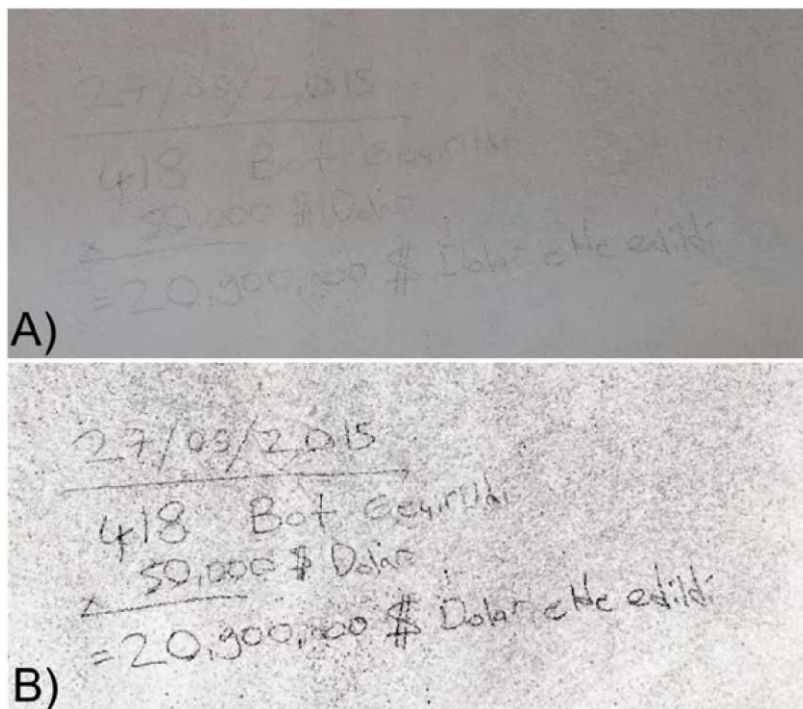 27/09/2015
418 Bot Geçirildi
50,000 $ Dolar
x
= 20,900,000 $ Dolar elde edildi
A)
27/09/2015
418 Bot Geçirildi
50,000 $ Dolar
x
= 20,900,000 $ Dolar elde edildi
B)